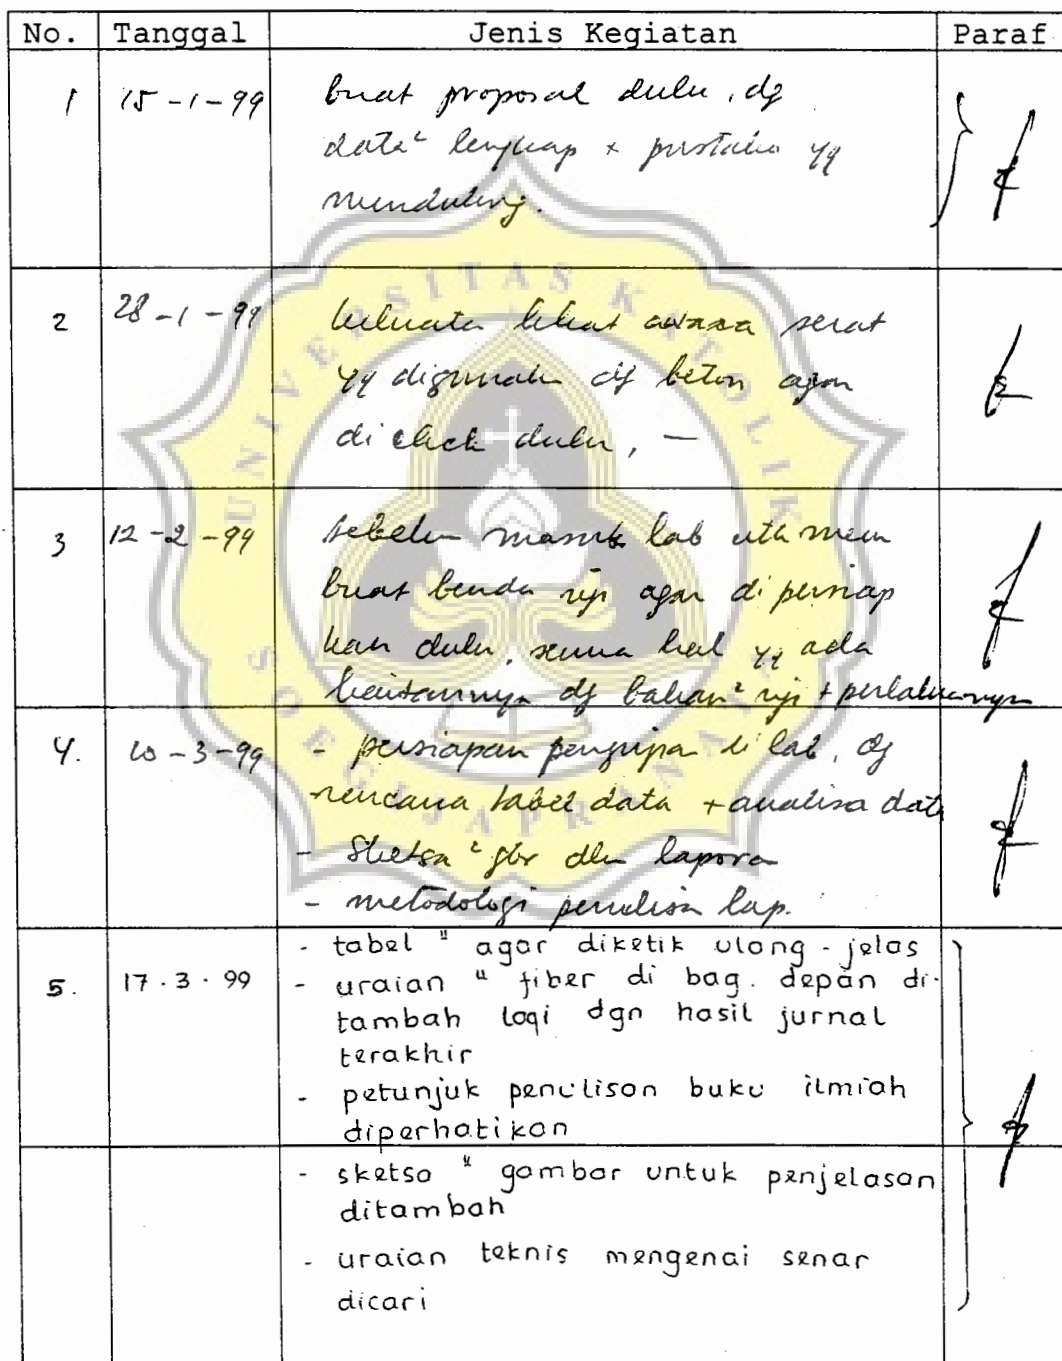 No. Tanggal Jenis Kegiatan Paraf
1 15-1-99 buat proposal dulu, dg
data² lengkap + pustaka yg
mendukung.
UNIVERSITAS KATOLIK
SOEGIJAPRANATA
2 28-1-99 lekat serat
yg digunakan dg beton agar
di check dulu, —
3 12-2-99 sebelum masuk lab utk mem
buat benda uji agar dipersiap
kan dulu, semua hal yg ada
kaitannya dg bahan² uji + perlakuannya
4. 10-3-99 - persiapan pengujian di lab, dg
rencana tabel data + analisa data
- Sketsa² gbr dlm laporan
- metodologi penulisan lap.
- tabel " agar diketik ulang - jelas
5. 17.3.99 - uraian " fiber di bag. depan di-
tambah lagi dgn hasil jurnal
terakhir
- petunjuk penulisan buku ilmiah
diperhatikan
- sketsa " gambar untuk penjelasan
ditambah
- uraian teknis mengenai senar
dicari